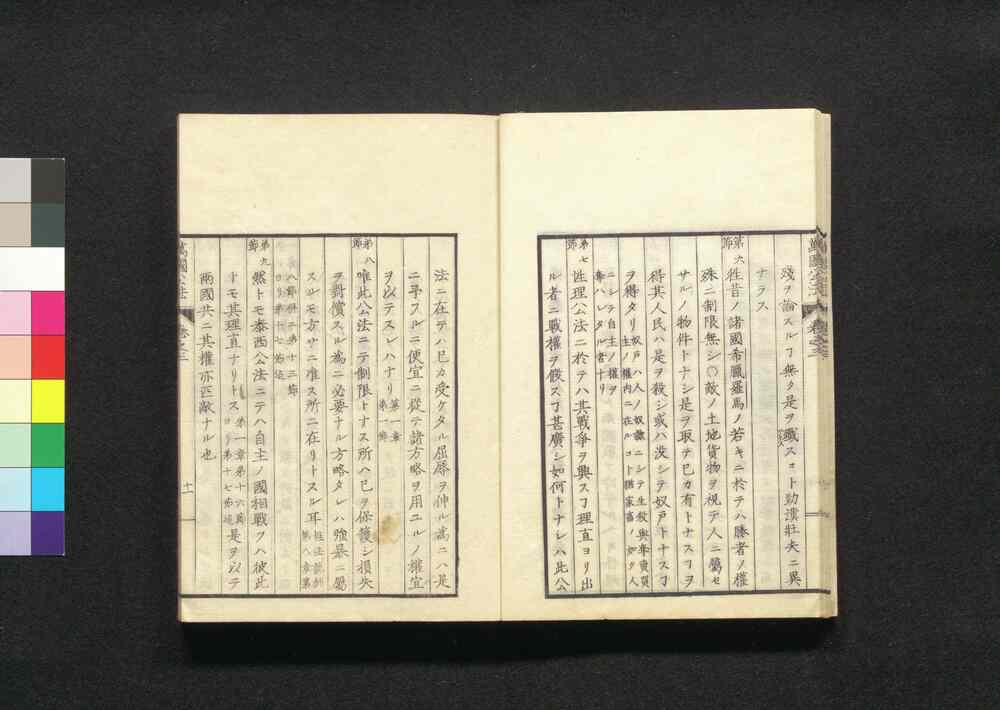 殘ヲ論スルヿ無ク是ヲ殲スコト勁漢壯夫ニ異
ナラス
第六節
往昔ノ諸國希臘羅馬ノ若キニ於テハ勝者ノ權
殊ニ制限無シ〇敵ノ土地貨物ヲ視テ人ニ屬セ
サルノ物件トナシ是ヲ取テ己カ有トナスヿヲ
得其人民ハ是ヲ殺シ或ハ没シテ奴戸トナスヿ
ヲ得タリ
奴戸ハ人ノ奴隷ニシテ生殺與奪賣買
主ノ權内ニ在ルコト猶家畜ノ如ク人
ニシテ自主ノ權ヲ
奪ハレタル者ナリ
第七節
性理公法ニ於テハ其戰爭ヲ興スヿ理直ヨリ出
ル者ニ戰權ヲ假スヿ甚廣シ如何トナレハ此公
法ニ在テハ己カ受ケタル屈辱ヲ伸ル爲ニハ是
ニ平スルニ便宜ニ從テ諸方略ヲ用ユルノ權宜
ヲ以テスレハナリ
第一章
第一節
第八節
唯此公法ニテ制限トナス所ハ己ヲ保護シ損失
ヲ對償スル爲ニ必要ナル方略タレハ強暴ニ屬
スルモ方サニ准ス所ニ在リトスル耳
性法説約
第八章第
八節併ニ第十三節
ヨリ第十七節迄
第九節
然トモ泰西公法ニテハ自主ノ國相戰フハ彼此
トモ其理直ナリトス
第一章第十六節
ヨリ第十七節迄
是ヲ以テ
兩國共ニ其權亦匹敵ナル也
萬國公法
卷之三
十一